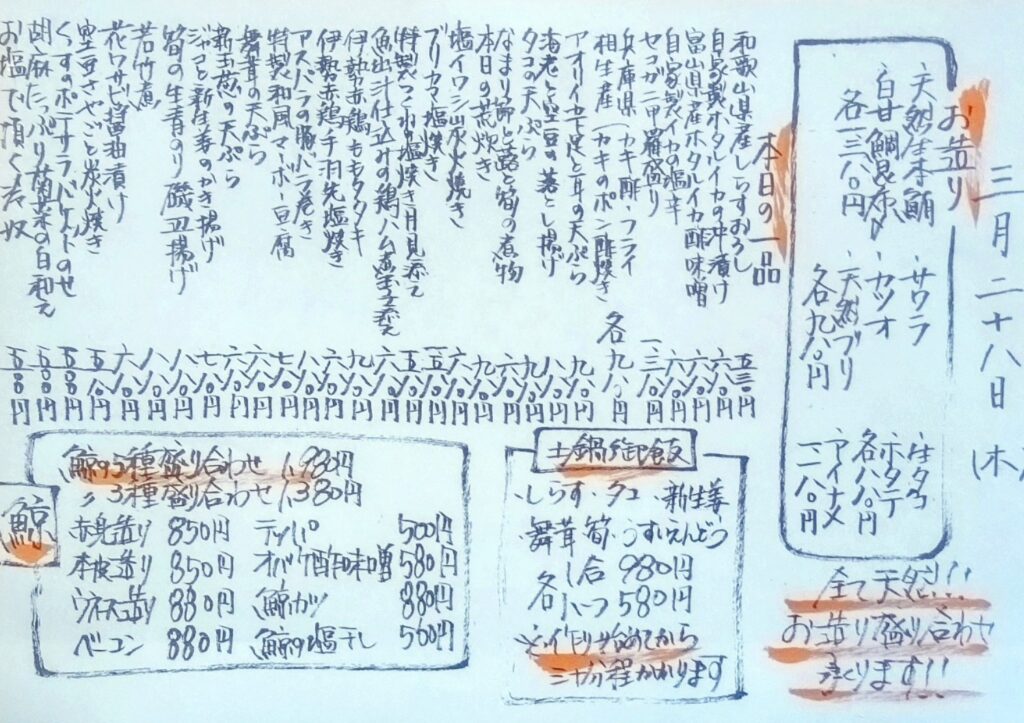 三月二十八日（木）
お造り
・天然生本鮪
・白甘鯛昆布〆
各一三八〇円
・サワラ
・カツオ
・天然ブリ
各九八〇円
・生タコ
・ホタテ
各八八〇円
・アイナメ
一二八〇円
全て天然!!!
お造り盛り合わせ
承ります!!
本日の一品
和歌山県産しらすおろし
自家製ホタルイカの沖漬け
富山県産ホタルイカ酢味噌
自家製イカの塩辛
セコガニ甲羅盛り
兵庫県（カキ酢・フライ
相生産（カキのポン酢焼き
各九八〇円
アオリイカ下足と耳の天ぷら
海老と空豆の落とし揚げ
タコの天ぷら
なまり節と蕗と筍の煮物
本日の荒炊き
塩イワシ炭火焼き
ブリカマ塩焼き
特製つくねの塩焼き月見添え
魚出汁仕込みの鶏ハム煮玉子添え
伊勢赤鶏ももタタキ
伊勢赤鶏手羽先塩焼き
アスパラの豚バラ巻き
特製和風マーボー豆腐
舞茸の天ぷら
新玉葱の天ぷら
筍の生青のり磯辺揚げ
ジャコと新生姜のかき揚げ
若竹煮
花ワサビ醤油漬け
空豆さやごと炭火焼き
くんすのポテサラバケットのせ
胡麻たっぷり菊菜の白和え
お塩で頂く冷奴
土鍋御飯
・しらす・タコ・新生姜
・舞茸・筍・うすいえんどう
各 一合 980円
ハーフ 580円
※作り始めてから
三十分程かかります
鯨
鯨の5種盛り合わせ 1,980円
〃 3種盛り合わせ 1,380円
赤身造り 850円
本皮造り 850円
ウネス造り 880円
ベーコン 880円
テッパ 500円
オバケ酢味噌 580円
鯨カツ 880円
鯨の塩干し 560円